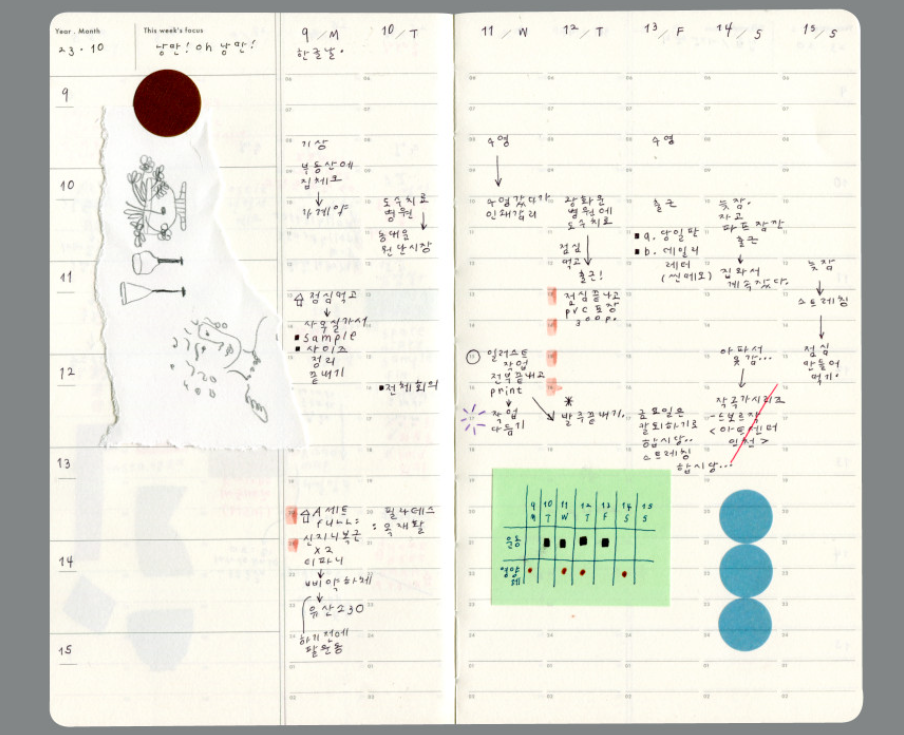 Year . Month
This week's focus
23 · 10
낭만! oh 낭만!
9
10
11
12
13
14
15
9 / M
한글날.
기상
부동산에
집체크
↓
⇧ 점심먹고
↓
사무실가서
■ sample
■ 사이즈
정리
끝내기
⇧ A세트
full!
신지니복근
x2
↓
↓
유산소30
하기전에
팔운동
10 / T
도수치료
병원
↓
동대문
원단시장
■ 전체회의
필라테스
: 목재활
11 / W
수영
↓
수영갔다가
일러스트
작업
전부끝내고
print
↓
작업
다듬기
12 / T
광화문
병원에
도수치료
점심
먹고
↓
출근!
점심끝나고
pvc포장
300p.
*
발주끝내기.
13 / F
수영
출근
■ a. 당일판
■ b. 데일리
레터
(씬메모)
금요일은
칼퇴하기로
합시당..
스트레칭
합시당...
14 / S
늦잠.
자고
파트잠깐
출근
↓
집와서
계속잤다.
아파서
못감...
↓
작곡가시리즈
<아트센터
인천>
15 / S
늦잠
↓
스트레칭
↓
점심
만들어
먹기.
9 10 11 12 13 14 15
M T W T F S S
운동 ■ ■ ■ ■
영양제